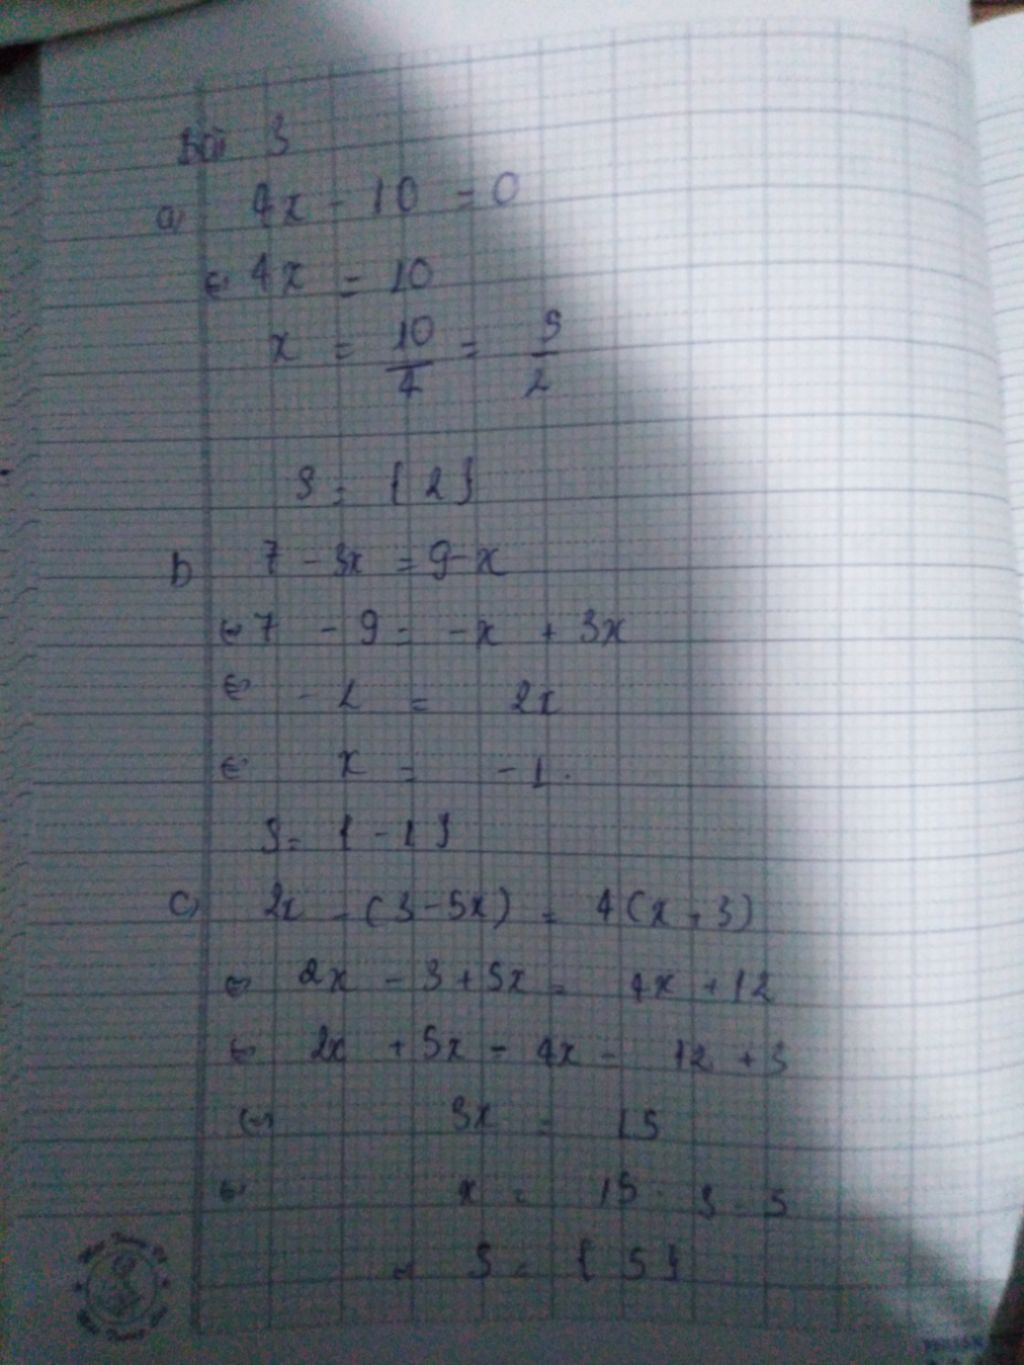 Bài 3
a) 4x - 10 = 0
⇔ 4x = 10
x = 10/4 = 5/2
S = { 2 }
b 7 - 3x = 9 - x
⇔ 7 - 9 = -x + 3x
⇔ - 2 = 2x
⇔ x = - 1.
S = { - 1 }
c) 2x - (3 - 5x) = 4(x + 3)
⇔ 2x - 3 + 5x = 4x + 12
⇔ 2x + 5x - 4x = 12 + 3
⇔ 3x = 15
⇔ x = 15 : 3 = 5
S = { 5 }